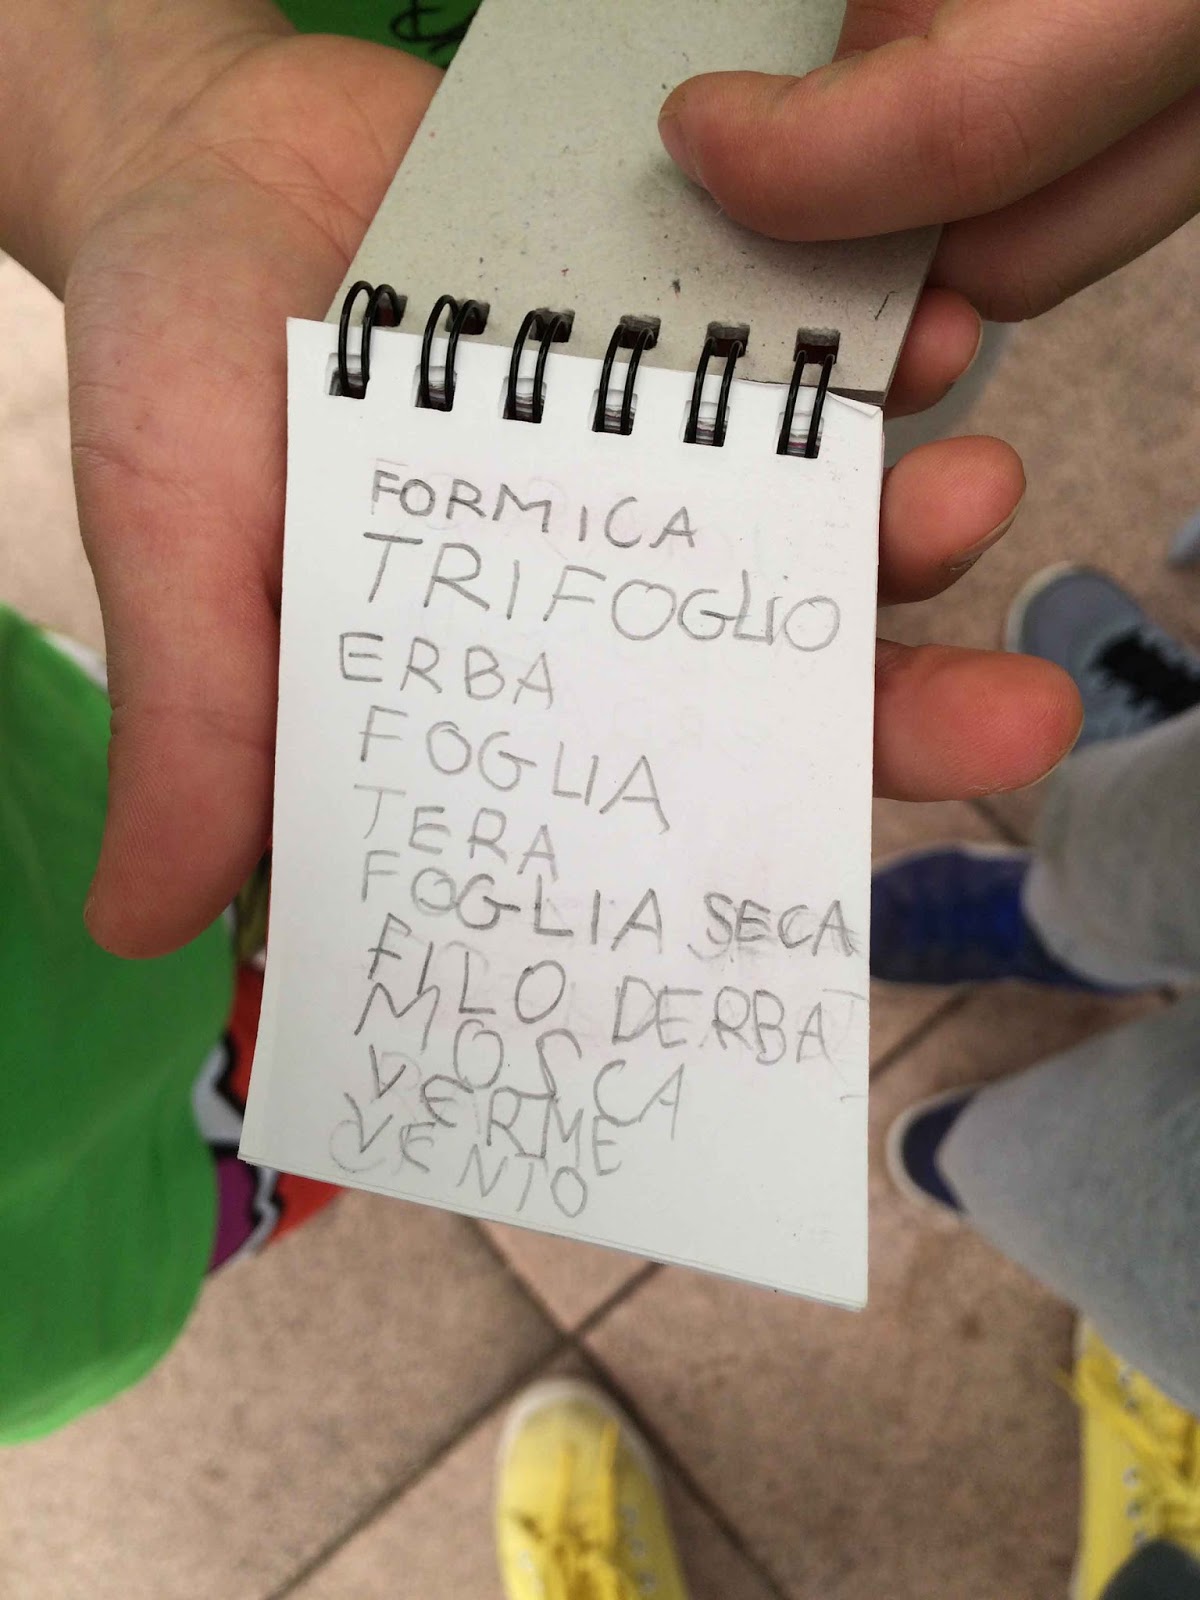 FORMICA
TRIFOGLIO
ERBA
FOGLIA
TERA
FOGLIA SECA
FILO DERBA
MOSCA
VERME
VENTO